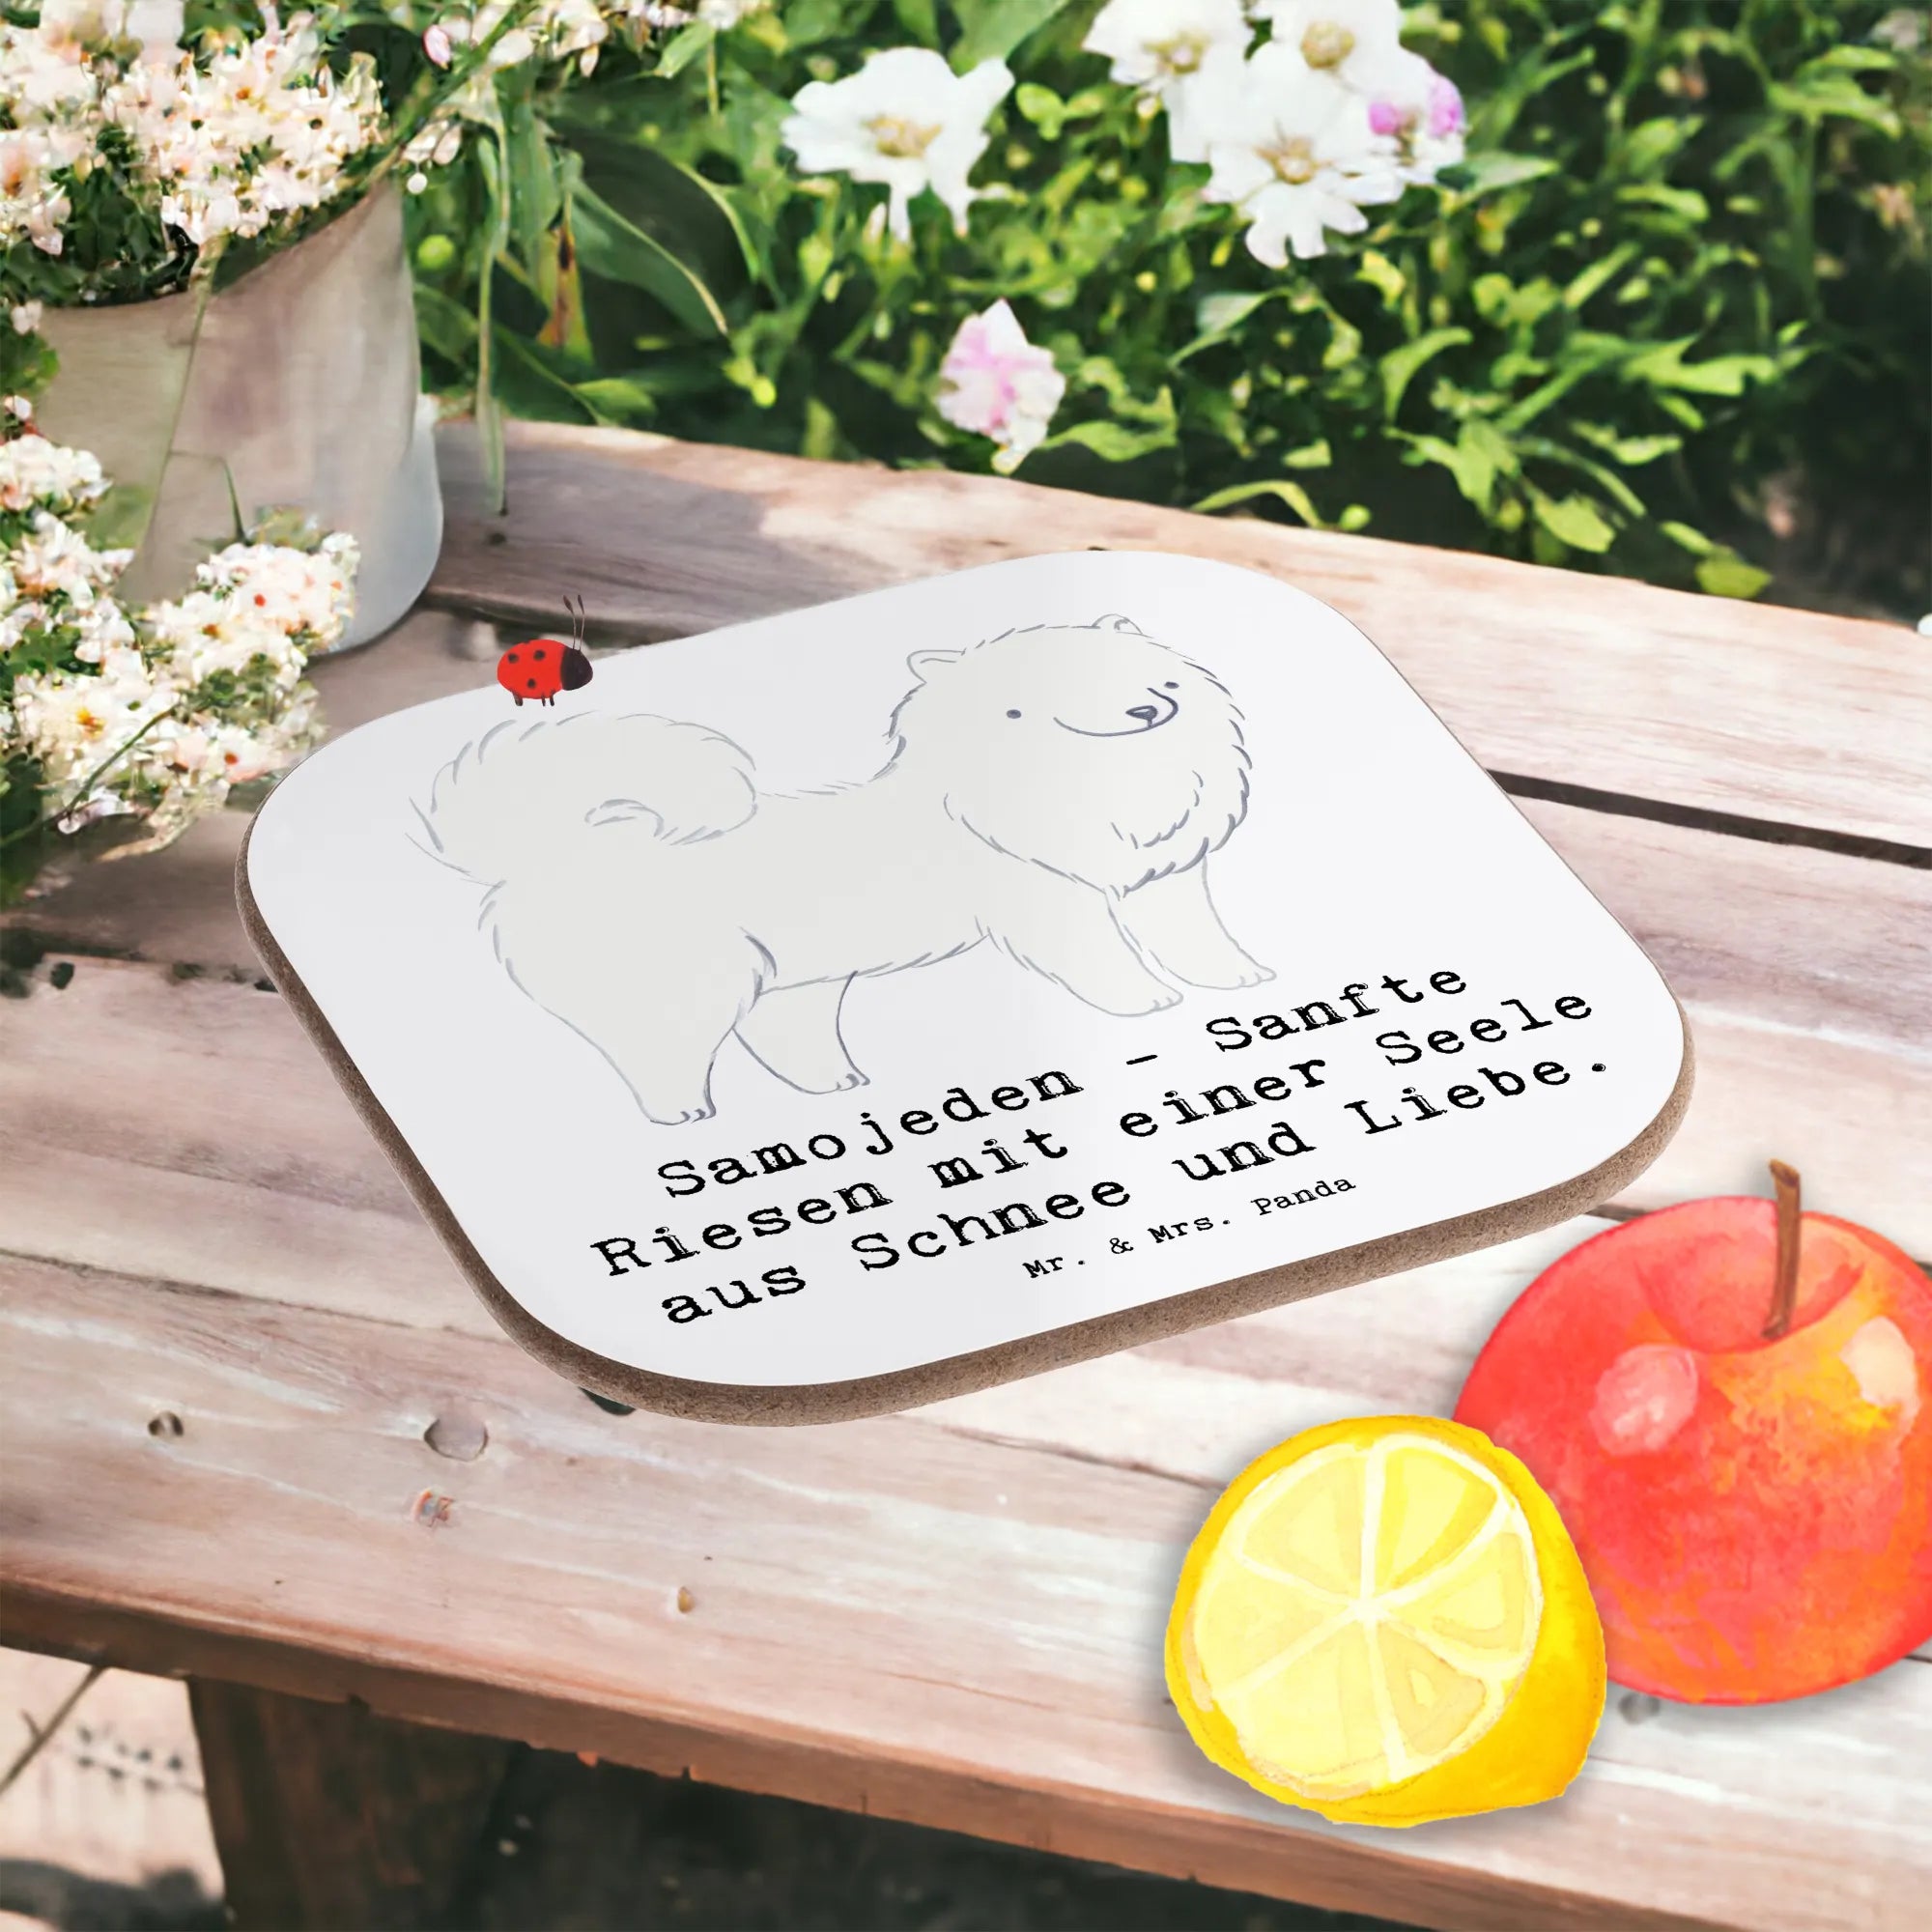 Samojeden - Sanfte
Riesen mit einer Seele
aus Schnee und Liebe.
Mr. & Mrs. Panda